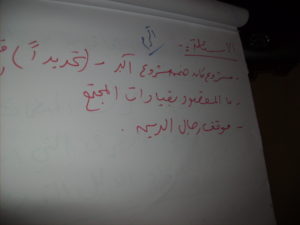 الاسئلة:
- مشروع ثاني ضمن مشروع أكبر - (تحديداً)
- ما المقصود بقيادات المجتمع
- موقف رجال الدين.